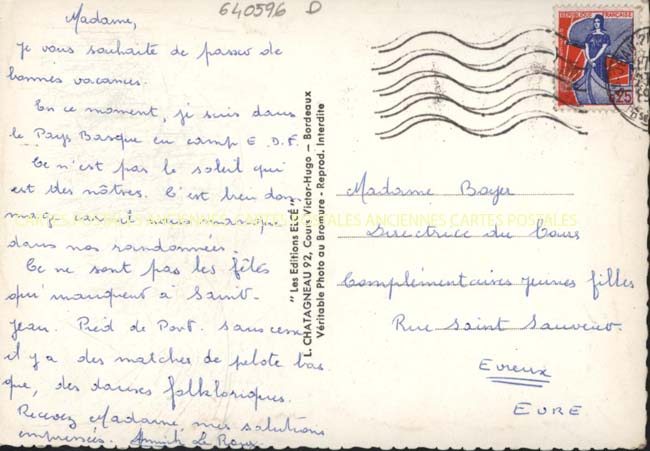 640596 D
Madame,
Je vous souhaite de passer de
bonnes vacances.
En ce moment, je suis dans
le Pays Basque en camp E.D.F.
Ce n'est pas le soleil qui
est des nôtres. C'est bien dom-
mage car il nous manque
dans nos randonnées.
Ce ne sont pas les fêtes
qui manquent à Saint-
Jean. Pied de Port. Sans cesse
il y a des matches de pelote bas
que, des danses folkloriques.
Recevez Madame, mes salutions
empressées. Annick Le Roux
"Les Editions ELCÉ"
L. CHATAGNEAU 92, Cours Victor-Hugo — Bordeaux
Véritable Photo au Bromure - Reprod. Interdite
REPUBLIQUE FRANÇAISE
0,25
Madame Boyer
Directrice du Cours
Complémentaires jeunes filles
Rue Saint Sauveur
Evreux
EURE
CARTES POSTALES ANCIENNES CARTES POSTALES